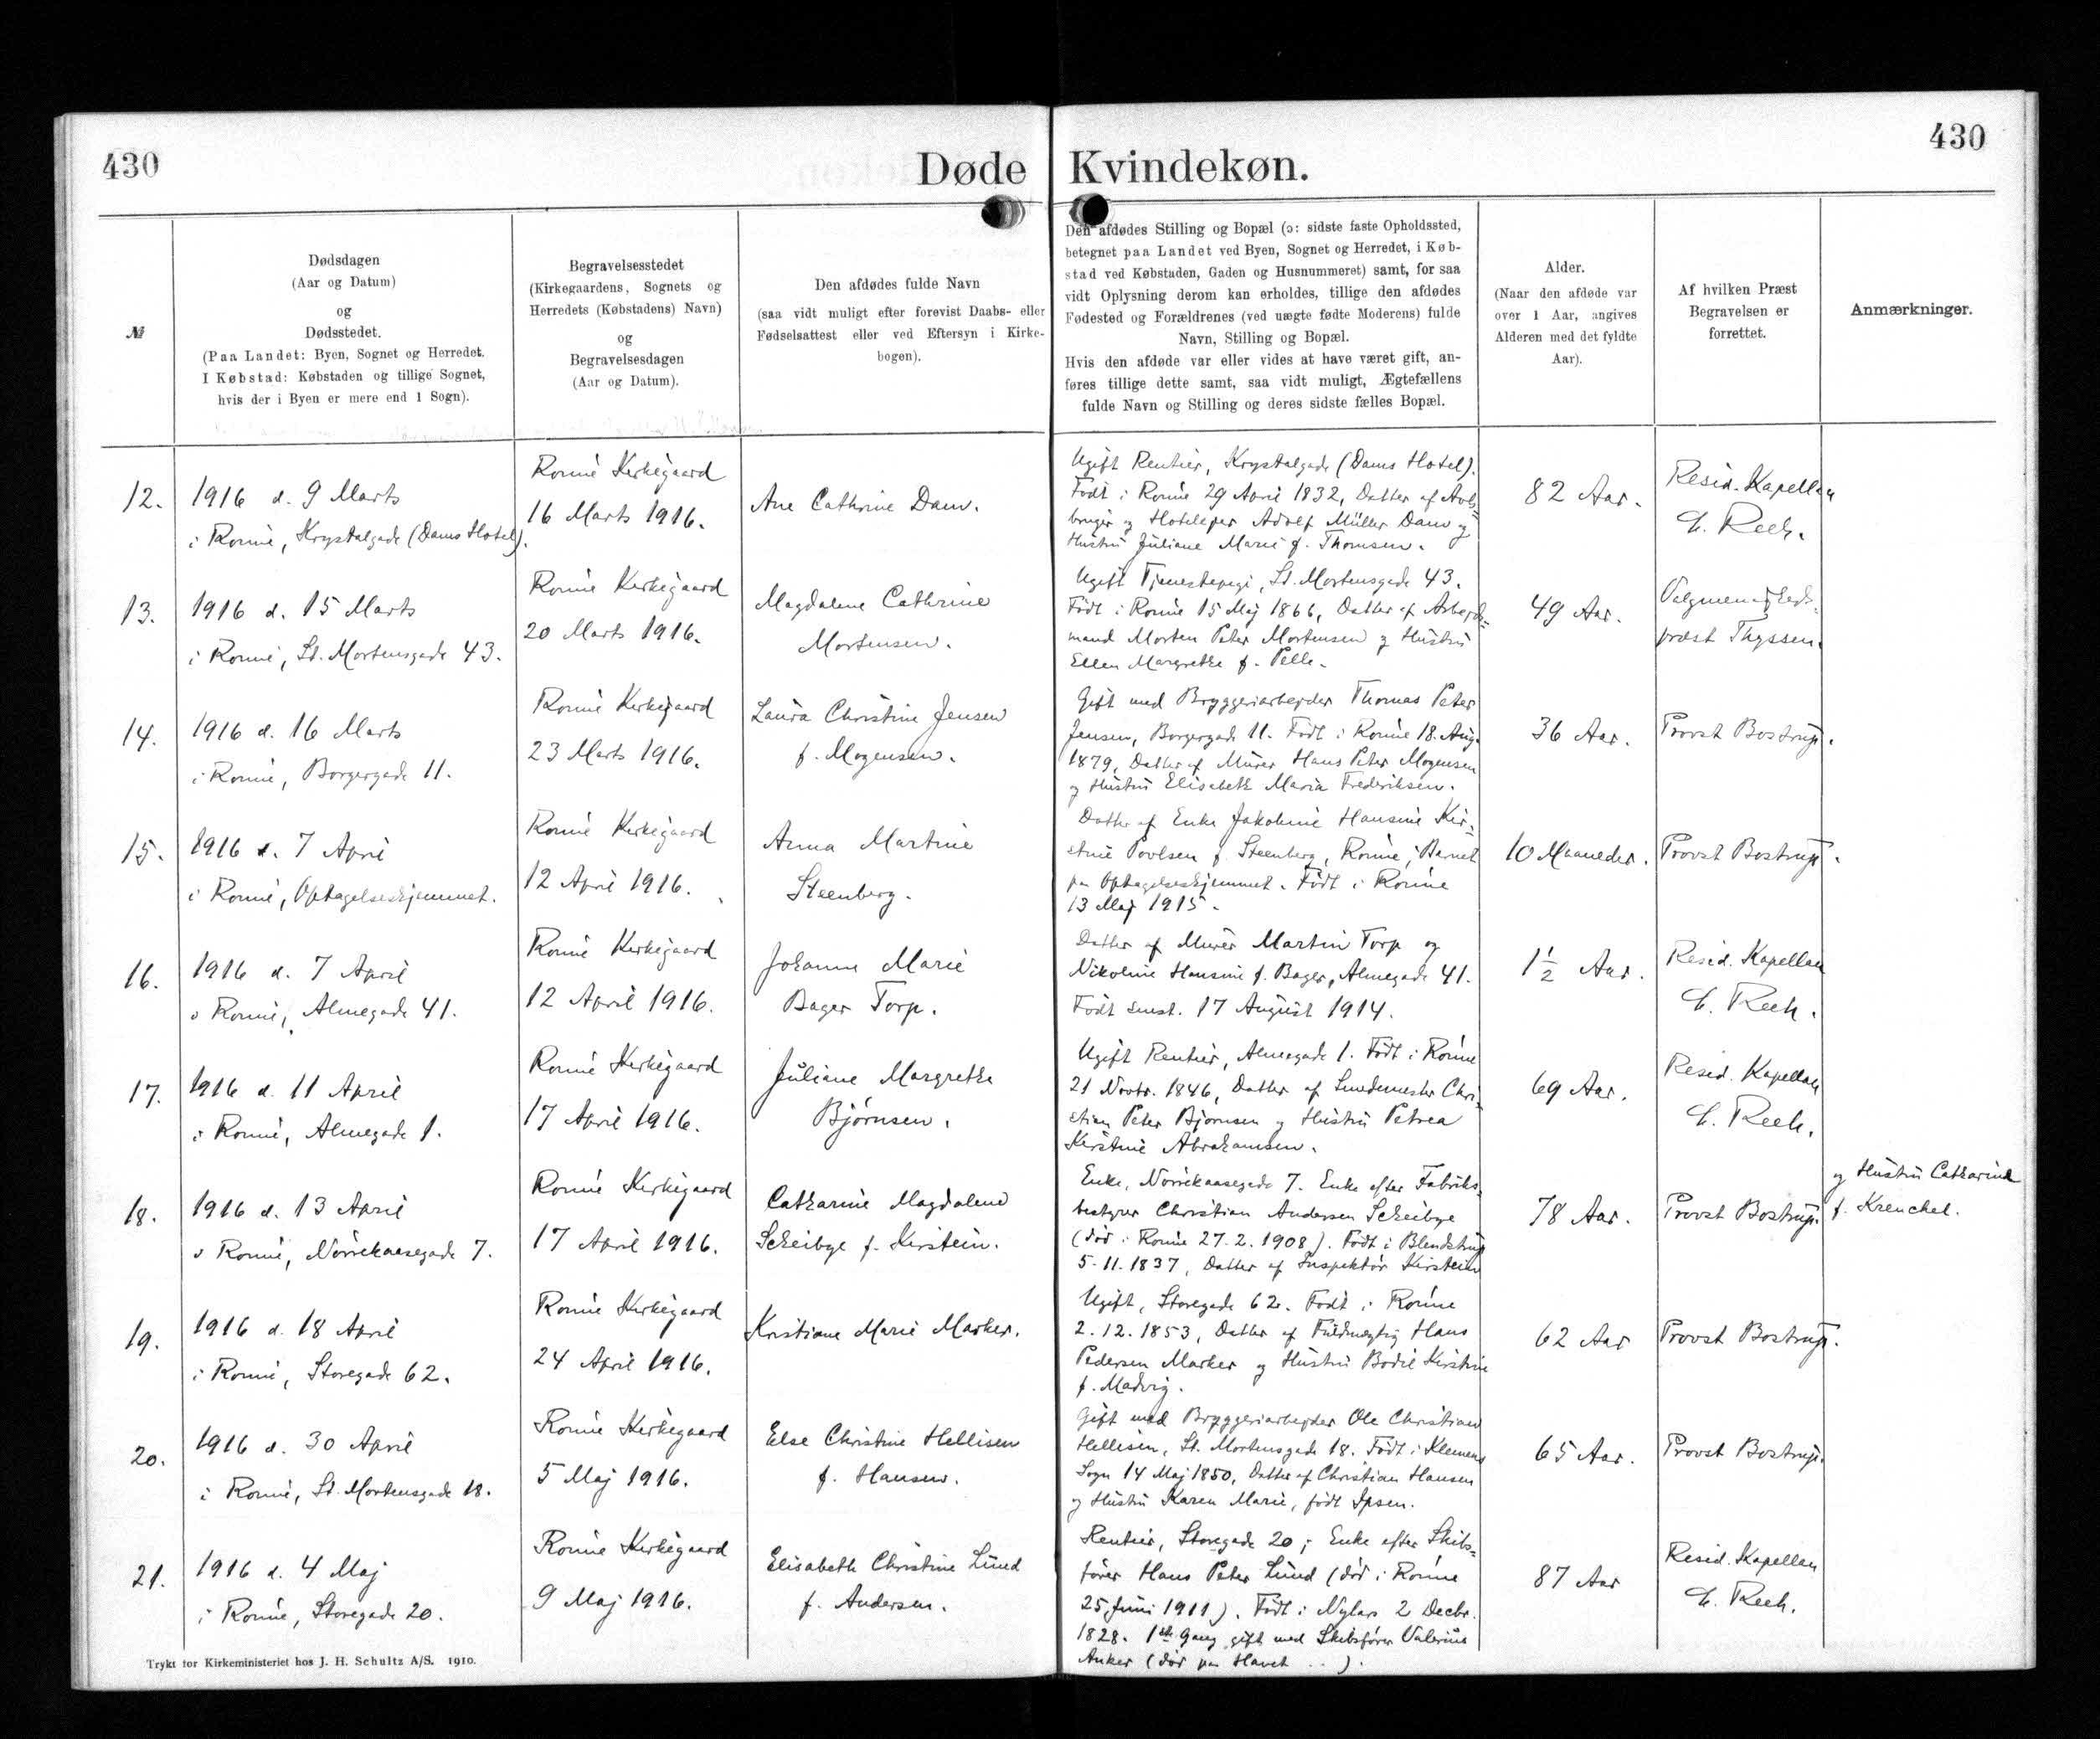 430
Døde
Kvindekøn.
430
№
Dødsdagen
(Aar og Datum)
og
Dødsstedet.
(Paa Landet: Byen, Sognet og Herredet.
I Købstad: Købstaden og tillige Sognet,
hvis der i Byen er mere end 1 Sogn).
Begravelsesstedet
(Kirkegaardens, Sognets og
Herredets (Købstadens) Navn)
og
Begravelsesdagen
(Aar og Datum).
Den afdødes fulde Navn
(saa vidt muligt efter forevist Daabs- eller
Fødselsattest eller ved Eftersyn i Kirke-
bogen).
Den afdødes Stilling og Bopæl (ɔ: sidste faste Opholdssted,
betegnet paa Landet ved Byen, Sognet og Herredet, i Køb-
stad ved Købstaden, Gaden og Husnummeret) samt, for saa
vidt Oplysning derom kan erholdes, tillige den afdødes
Fødested og Forældrenes (ved uægte fødte Moderens) fulde
Navn, Stilling og Bopæl.
Hvis den afdøde var eller vides at have været gift, an-
føres tillige dette samt, saa vidt muligt, Ægtefællens
fulde Navn og Stilling og deres sidste fælles Bopæl.
Alder.
(Naar den afdøde var
over 1 Aar, angives
Alderen med det fyldte
Aar).
Af hvilken Præst
Begravelsen er
forrettet.
Anmærkninger.
12.
1916 d. 9 Marts
i Rønne, Krystalgade (Dams Hotel).
Rønne Kirkegaard
16 Marts 1916.
Ane Cathrine Dam.
Ugift Rentier, Krystalgade (Dams Hotel).
Født i Rønne 29 April 1832, Datter af Avls-
bruger og Hotelejer Adolf Müller Dam og
Hustru Juliane Marie f. Thomsen.
82 Aar.
Resid. Kapellan
C. Reeh.
13.
1916 d. 15 Marts
i Rønne, St. Mortensgade 43.
Rønne Kirkegaard
20 Marts 1916.
Magdalene Cathrine
Mortensen.
Ugift Tjenestepige, St. Mortensgade 43.
Født i Rønne 15 Maj 1866, Datter af Arbejds-
mand Morten Peter Mortensen og Hustru
Ellen Margrethe f. Pelle.
49 Aar.
Valgmenigheds-
præst Thyssen.
14.
1916 d. 16 Marts
i Rønne, Borgergade 11.
Rønne Kirkegaard
23 Marts 1916.
Laura Christine Jensen
f. Mogensen.
Gift med Bryggeriarbejder Thomas Peter
Jensen, Borgergade 11. Født i Rønne 18. Aug.
1879, Datter af Murer Hans Peter Mogensen
og Hustru Elisabeth Maria Frederiksen.
36 Aar.
Provst Bostrup.
15.
1916 d. 7 April
i Rønne, Optagelseshjemmet.
Rønne Kirkegaard
12 April 1916.
Anna Martine
Steenberg.
Datter af Enke Jakobine Hansine Kir-
stine Povlsen f. Steenberg, Rønne; Barnet
paa Optagelseshjemmet. Født i Rønne
13 Maj 1915.
10 Maaneder.
Provst Bostrup.
16.
1916 d. 7 April
i Rønne, Almegade 41.
Rønne Kirkegaard
12 April 1916.
Johanne Marie
Bager Torp.
Datter af Murer Martin Torp og
Nikoline Hansine f. Bager, Almegade 41.
Født smst. 17 August 1914.
1½ Aar.
Resid. Kapellan
C. Reeh.
17.
1916 d. 11 April
i Rønne, Almegade 1.
Rønne Kirkegaard
17 April 1916.
Juliane Margrethe
Bjørnsen.
Ugift Rentier, Almegade 1. Født i Rønne
21 Novbr. 1846, Datter af Smedemester Chri-
stian Peter Bjørnsen og Hustru Petrea
Kirstine Abrahamsen.
69 Aar.
Resid. Kapellan
C. Reeh.
18.
1916 d. 13 April
i Rønne, Nørrekaasegade 7.
Rønne Kirkegaard
17 April 1916.
Catharine Magdalene
Scheibye f. Kirstein.
Enke, Nørrekaasegade 7. Enke efter Fabriks-
bestyrer Christian Andersen Scheibye
(død i Rønne 27.2.1908). Født i Blendstrup
5.11.1837, Datter af Inspektør Kirstein
78 Aar.
Provst Bostrup.
og Hustru Catharine
f. Krenchel.
19.
1916 d. 18 April
i Rønne, Storegade 62.
Rønne Kirkegaard
24 April 1916.
Kristiane Marie Marker.
Ugift, Storegade 62. Født i Rønne
2.12.1853, Datter af Fuldmægtig Hans
Pedersen Marker og Hustru Bodil Kirstine
f. Madvig.
62 Aar
Provst Bostrup.
20.
1916 d. 30 April
i Rønne, St. Mortensgade 18.
Rønne Kirkegaard
5 Maj 1916.
Else Christine Hellisen
f. Hansen.
Gift med Bryggeriarbejder Ole Christian
Hellisen, St. Mortensgade 18. Født i Klemens
Sogn 14 Maj 1850, Datter af Christian Hansen
og Hustru Karen Marie, født Ipsen.
65 Aar.
Provst Bostrup.
21.
1916 d. 4 Maj
i Rønne, Storegade 20.
Rønne Kirkegaard
9 Maj 1916.
Elisabeth Christine Lund
f. Andersen.
Rentier, Storegade 20; Enke efter Skibs-
fører Hans Peter Lund (død i Rønne
25 Juni 1911). Født i Nylars 2 Decbr.
1828. 1ste Gang gift med Skibsfører Valerius
Anker (død paa Havet ..).
87 Aar
Resid. Kapellan
C. Reeh.
Trykt for Kirkeministeriet hos J. H. Schultz A/S. 1910.